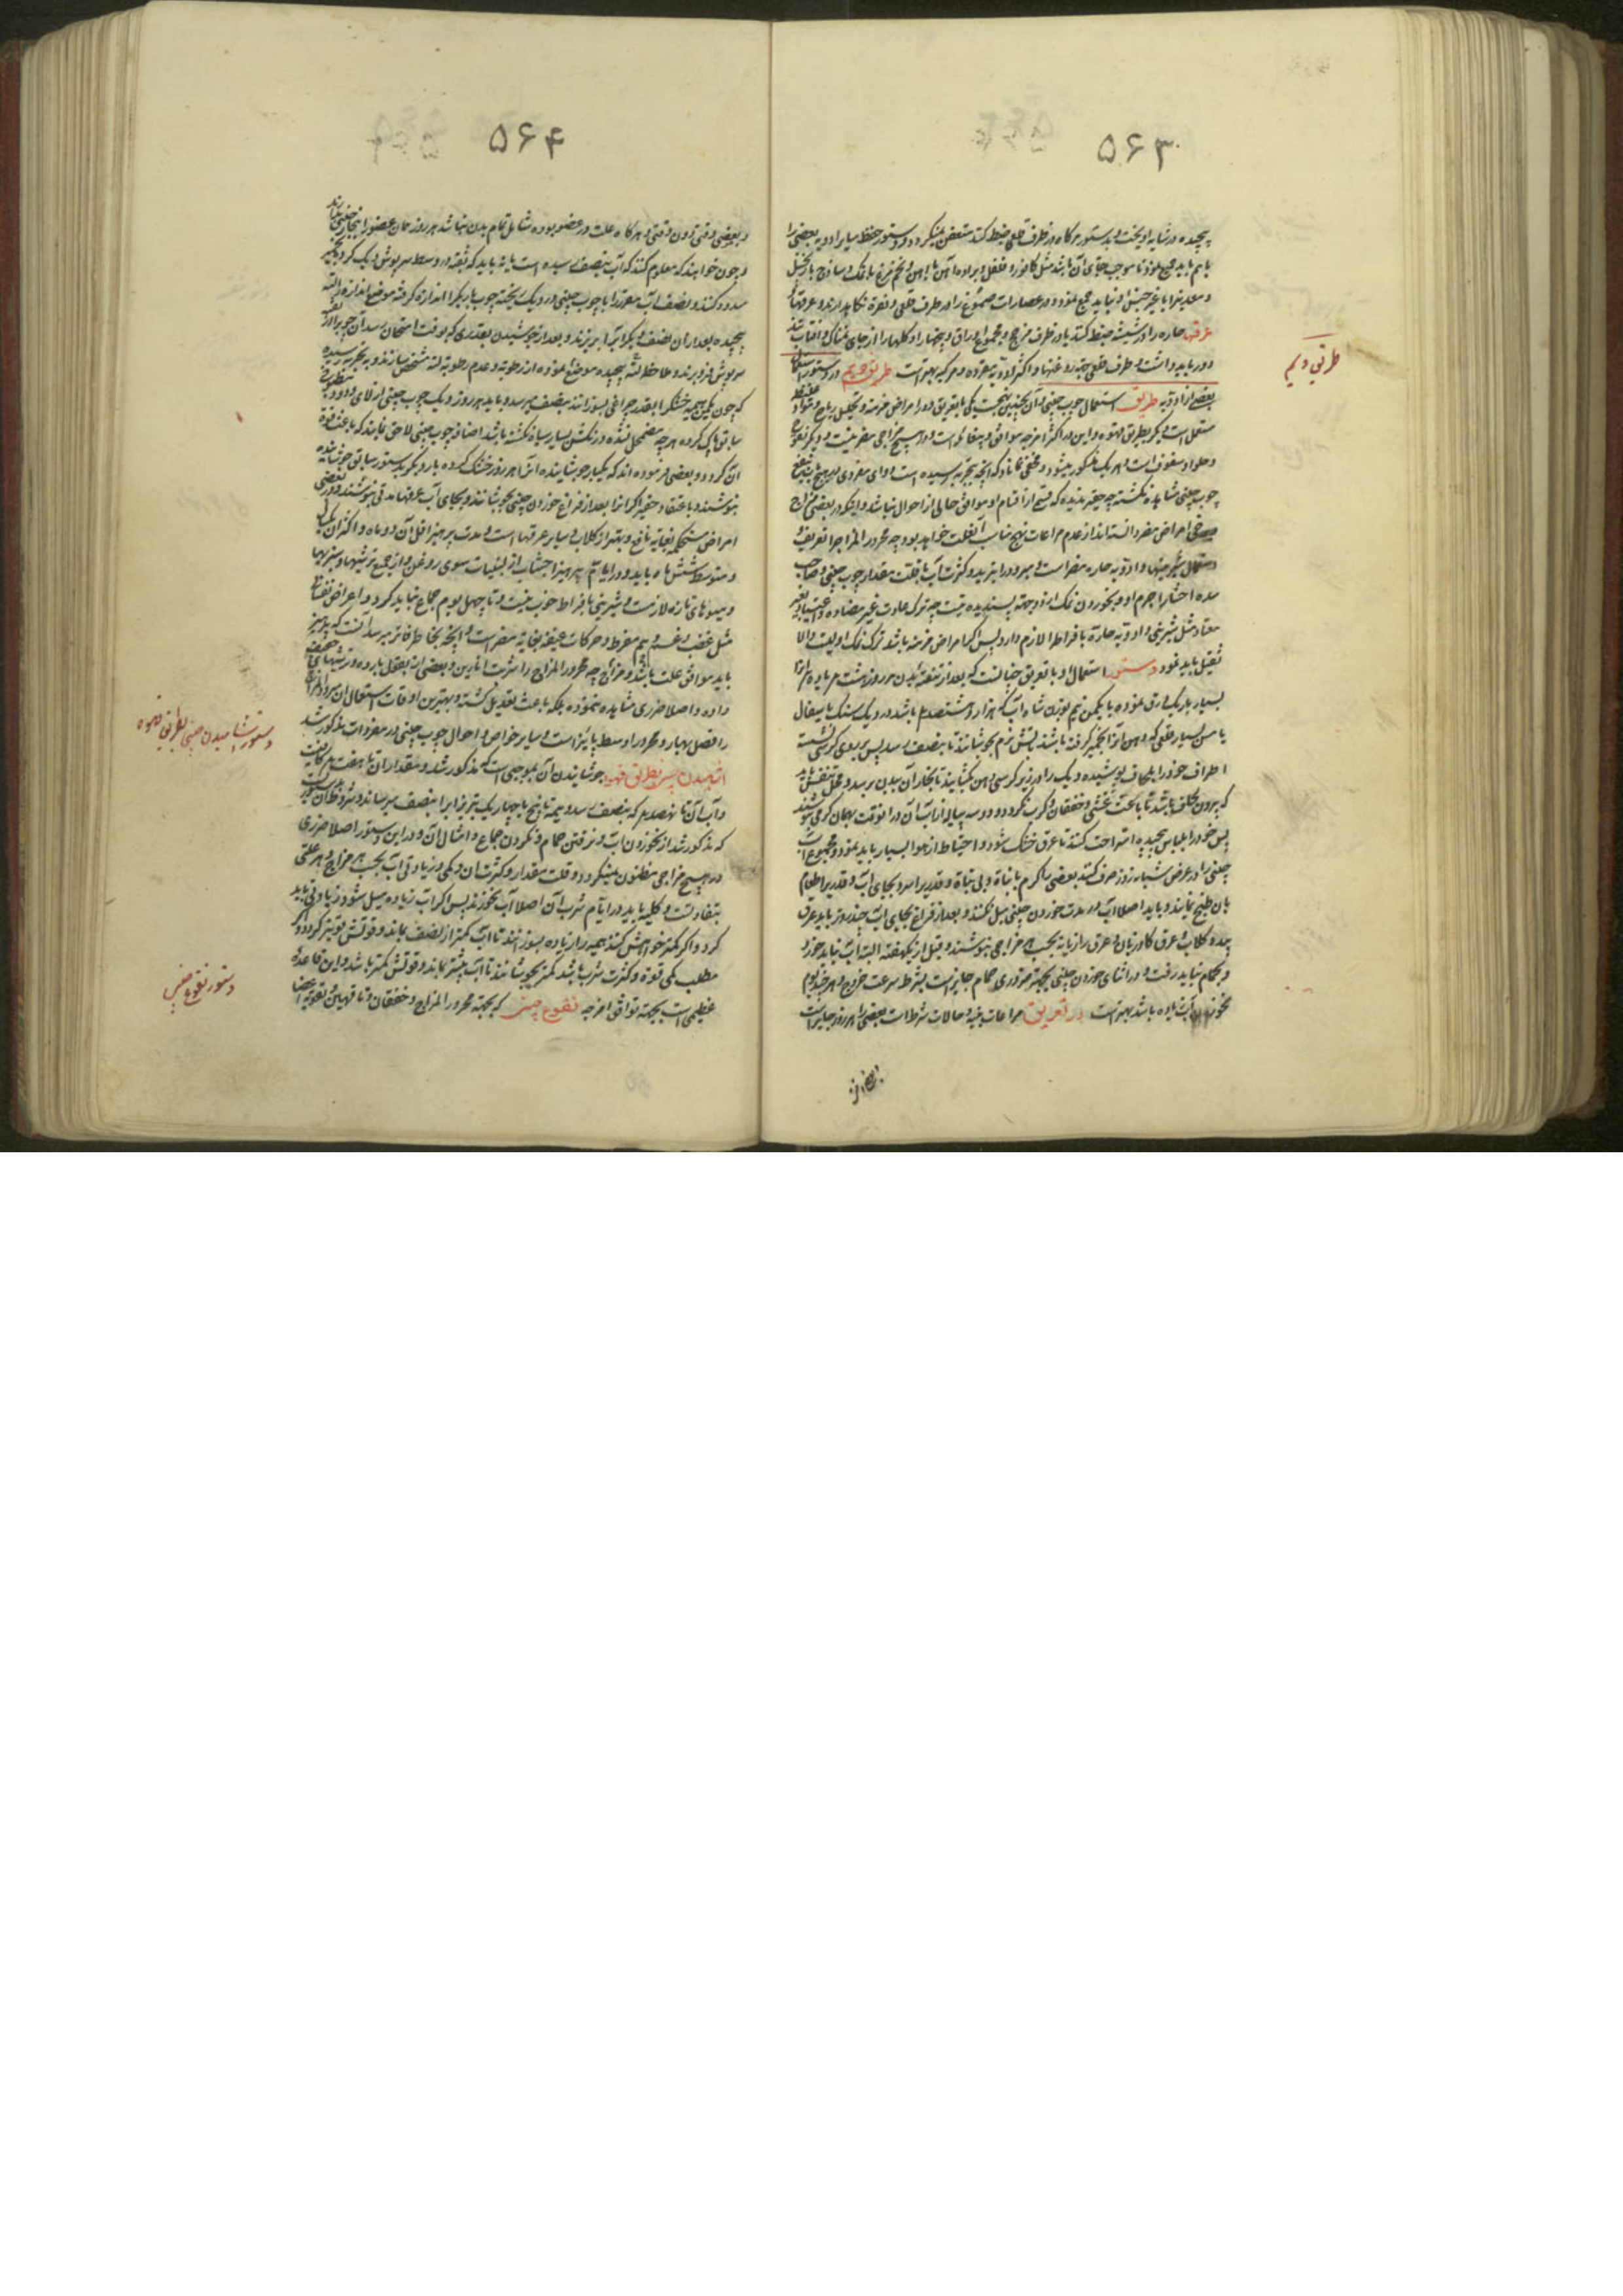 ۵۶۳
پیچیده در سایه اویخت و بدستور هرگاه در ظرف قلعی ضبط کنند متعفن نمیگردد و دستور حفظ سایر ادویه بعضی را
باهم باید جمع نمود تا موجب بقای آن باشد مثل کافور و فلفل و براده آهن با
و معدنیرا با غیر جنس او نباید جمع نمود و در عصارات و صموغ را در ظرف قلعی و نقره نگاه دارند و عرقها
عرقهای حاره را در شیشه ضبط کنند یا در ظرف مزجج و مجموع اوراق و بیخها را و گلها را از جای نمناک و افتاب
دور باید داشت و ظرف قلعی جهة روغنها و اکثر ادویه مفرده و مرکبه بهتر است طریق دویم در دستور استعمال
بعضی از ادویه طریق استعمال چوب چینی و آن بچندین نحو است یکی بتعریق و در امراض مزمنه و تحلیل ریاح و مواد غلیظه
مستعمل است و دیگر بطریق قهوه و این در اکثر امزجه موافق و بیغائله است و در هیچ مزاجی مضر نیست و دیگر نقوع
و حلوا و سفوف است و هر یک مذکور میشود و مخفی نماناد که آنچه بتجربه رسیده است دوای مفردی به هیچ باب بنفع
چوب چینی مشاهده نگشته چه حقیر ندیده که قسمی از اقسام او موافق حالی از احوال نباشد و اینکه در بعضی مزاج
و بعضی امراض مضر دانسته اند از عدم مراعات نهج مناسب آن علت خواهد بود چه محرور المزاج را تعریق و
استعمال شیرینیها و ادویه حاره مضر است و مبرود را تبرید و کثرت آب با قلت مقدار چوب چینی و صاحب
سده احشا را جرم او و نخوردن نمک از دو جهة پسندیده نیست چه ترک عادت غیر مضاده و
معتاد مثل شیرینی و ادویه حاره بافراط لازم دارد پس اگر امراض مزمنه باشد ترک نمک اولیست و الا
تقلیل باید نمود دستور استعمال او با تعریق چنانست که بعد از تنقیه بدن هر روز هشت درم باید انرا
بسیار باریک ورق نموده با یکمن نیم بوزن شاه آب که هزار و هشتصد درم باشد در دیک سنک یا سفال
یا مس بسیار قلعی که دهن انرا بخمیر گرفته باشند باتش نرم بجوشانند تا بنصف رسد پس بر روی کرسی نشسته
اطراف خود را بلحاف پوشیده و دیک را در زیر کرسی دهن بگشایند تا بخار آن ببدن برسد و محل تنفس باید
که بیرون لحاف باشد تا باعث غشی و خفقان و کرب نگردد و دو سه پیاله از آب آن در انوقت بهمان گرمی بنوشند
پس خود را بلباس پیچیده استراحت کنند تا عرق خشک شود و احتیاط از هوا بسیار باید نمود و مجموع آب
چینی را در عرض شبانه روز صرف کنند بعضی را گرم با نبات و بی نبات و قدریرا سرد بجای آب و قدریرا طعام
بان طبخ نمایند و باید اصلا آب در مدت خوردن چینی میل نکنند و بعد از فراغ بجای آب چند روز باید عرق
بید و گلاب و عرق گاوزبان و عرق رازیانه بحسب هر مزاجی بنوشند و قبل از یکهفته البته آب نباید خورد
و بحمام نباید رفت و در اثنای خوردن چینی بجهة ضروری حمام جایز است بشرط سرعت خروج و هر چند یوم
نخوردن آب زیاده باشد بهتر است در تعریق مراعات بنیه و حالات شرط است بعضی را هر روز جایز است
و بعضی را
طریق دویم
۵۶۴
و بعضی وقتی دون وقتی و هرگاه علت در عضو بوده شامل تمام بدن نباشد هر روز همان عضو را ببخار چینی بدارند
و چون خواهند که معلوم کنند که آب بنصف رسیده است یا نه باید که ثقبه در وسط سرپوش دیک کرد و بخمیر
مسدود کنند و نصف آب مقرر را با چوب چینی در دیک ریخته چوب باریکرا اندازه گرفته موضع اندازه را لته
پیچیده بعد از آن نصف دیگر آبرا بریزند و بعد از جوشیدن بقدری که بوقت امتحان رسد آن چوبرا از ثقبه
سرپوش فرو برند و ملاحظه لته پیچیده موضع نموده از رطوبه و عدم رطوبه لته مشخص سازند و به تجربه رسیده
که چون یکمن هیمه خشک را بقدر چراغی بسوزانند بنصف میرسد و باید هر روز دیک چوب چینی
سابق پاک کرده هر چه مضمحل نشده و رنگش بسیار سیاه نگشته باشد اضافه چوب چینی لاحق نمایند که باعث قوة
آن گردد و بعضی فرموده اند که یکبار جوشانیده انرا هر روز خشک کرده بار دیگر بدستور سابق جوشانیده
بنوشند و باعتقاد حقیر اگر انرا بعد از فراغ خوردن چینی بجوشانند و بجای آب عرقها مدتی بنوشند در بعضی
امراض مستحکمه بغایه نافع و بهتر از گلاب و سایر عرقها است و مدت پرهیز اقل آن دو ماه و اکثر آن یکسال
و متوسط شش ماه باید و در ایام پرهیز اجتناب از لبنیات سوی روغن و از جمیع ترشیها و سبزیها
و میوهای تازه لازمست و شیرینی بافراط خوب نیست و تا چهل یوم جماع نباید کرد و اعراض نفسانی
مثل غضب و غم و هم مفرط و حرکات عنیفه بغایه مضر است و آنچه بخاطر فاتر میرسد آنست که پرهیز
باید موافق علت باشد و مزاج چه محرور المزاج را شربت انارین و بعضی از بقول بارده و ترشیهای خفیفه
داده و اصلا ضرری مشاهده ننموده بلکه باعث تعدیل گشته و بهترین اوقات استعمال ان مبرود المزاج
را فصل بهار و محرور را وسط پائیز است و سایر خواص و احوال چوب چینی در مفردات مذکور شد
آشامیدن چینی بطریق قهوه جوشانیدن آن بموجبی است که مذکور شد و مقدار ان تا هفت درم کافیست
و آب آن تا نهصد درم که بنصف رسد و تتمه تا پنج یا چهار یک تبریز آبرا بنصف میرساند و شروط آن بدستور
که مذکور شد از نخوردن آب و نرفتن حمام و نکردن جماع و امثال ان و در این دستور اصلا ضرری
در هیچ مزاجی مظنون نمیگردد و قلت مقدار و کثرت ان و کمی و زیادتی آب بحسب هر مزاج و هر علتی
متفاوتست و کلیة باید در ایام شرب آن اصلا آب نخورند پس اگر آب زیاده میل شود زیادتی باید
کرد و اگر کمتر خواهش کنند هیمه را زیاده بسوزانند تا آب کمتر از نصف بماند و قوتش قویتر گردد و اگر
مطلب کمی قوة و کثرت شرب باشد کمتر بجوشانند تا آب بیشتر بماند و قوتش کمتر باشد و این قاعده
عظیمی است بجهة توافق امزجه نقوع چینی که بجهة محرور المزاج و خفقان و ناقهین و تقویه اعضا
دستور آشامیدن چینی بطریق قهوه
دستور نقوع چینی